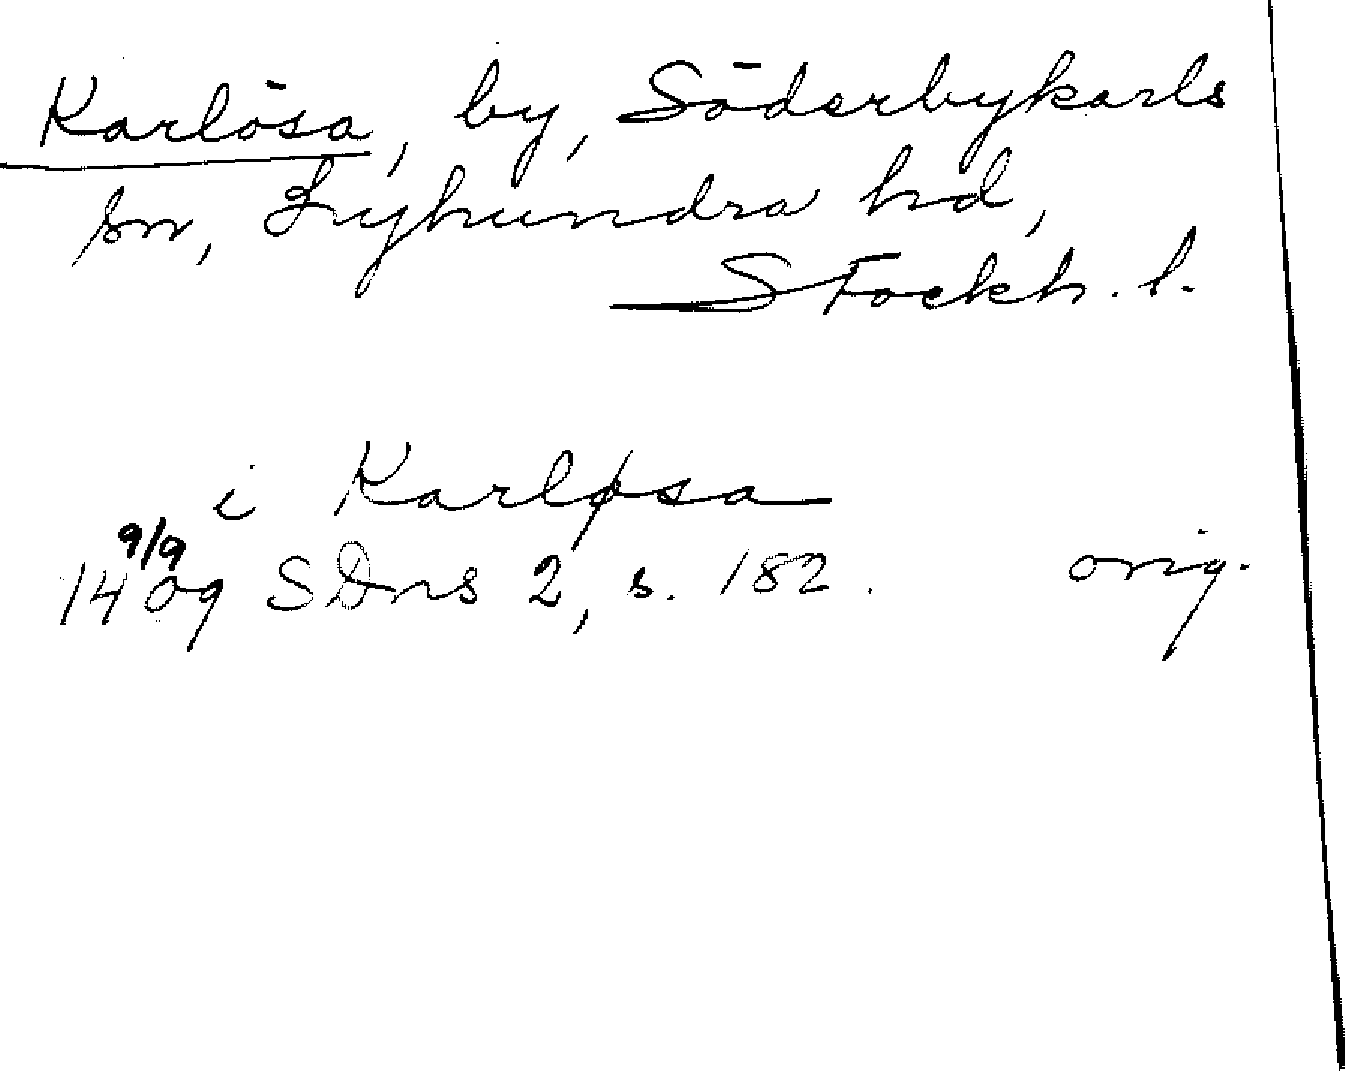 Karlösa, by, Söderbykarls
sn, Lyhundra hd,
Stockh. l.
i Karløsa
9/9
1409 SDns 2, s. 182. orig.